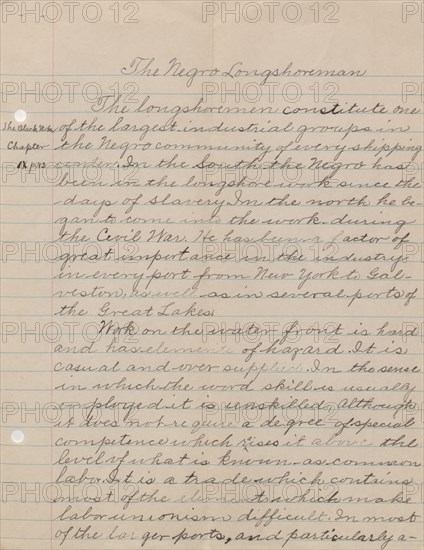 The Negro Longshoreman
The longshoremen constitute one
of the largest industrial groups in
the Negro community of every shipping
center. In the South the Negro has
been in the longshore work since the
days of slavery. In the north he be-
gan to come into the work during
the Civil War. He has been a factor of
great importance in the industry
in every port from New York to Gal-
veston, as well as in several ports of
the Great Lakes.
Work on the water front is hard
and has elements of hazard. It is
casual and over supplied. In the sense
in which the word skill is usually
employed it is unskilled. Although
it does not require a degree of special
competence which rises it above the
level of what is known as common
labor. It is a trade which contains
most of the elements which make
labor unionism difficult. In most
of the larger ports, and particularly a-
The Black
Chapter